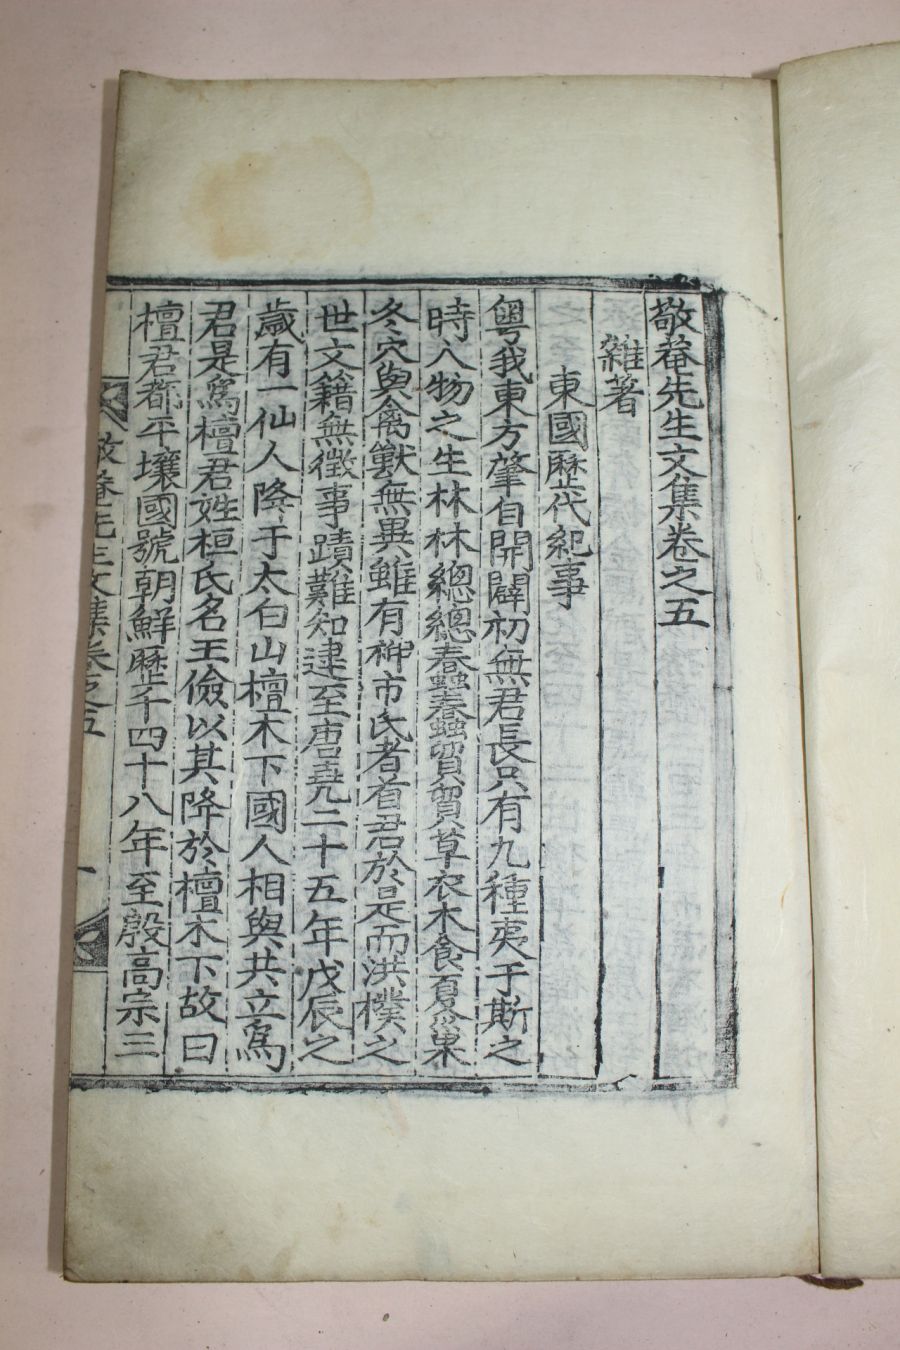 敬菴先生文集卷之五
雜著
東國歷代紀事
粤我東方肇自開闢初無君長只有九種夷于斯之
時人物之生林林總總春蠢春蠢貿貿草衣木食夏巢
冬穴與禽獸無異雖有神市氏者君於是而洪樸之
世文籍無徵事蹟難知逮至唐堯二十五年戊辰之
歲有一仙人降于太白山檀木下國人相與共立爲
君是爲檀君姓桓氏名王儉以其降於檀木下故曰
檀君都平壤國號朝鮮歷千四十八年至殷高宗三
敬菴先生文集卷之五
一